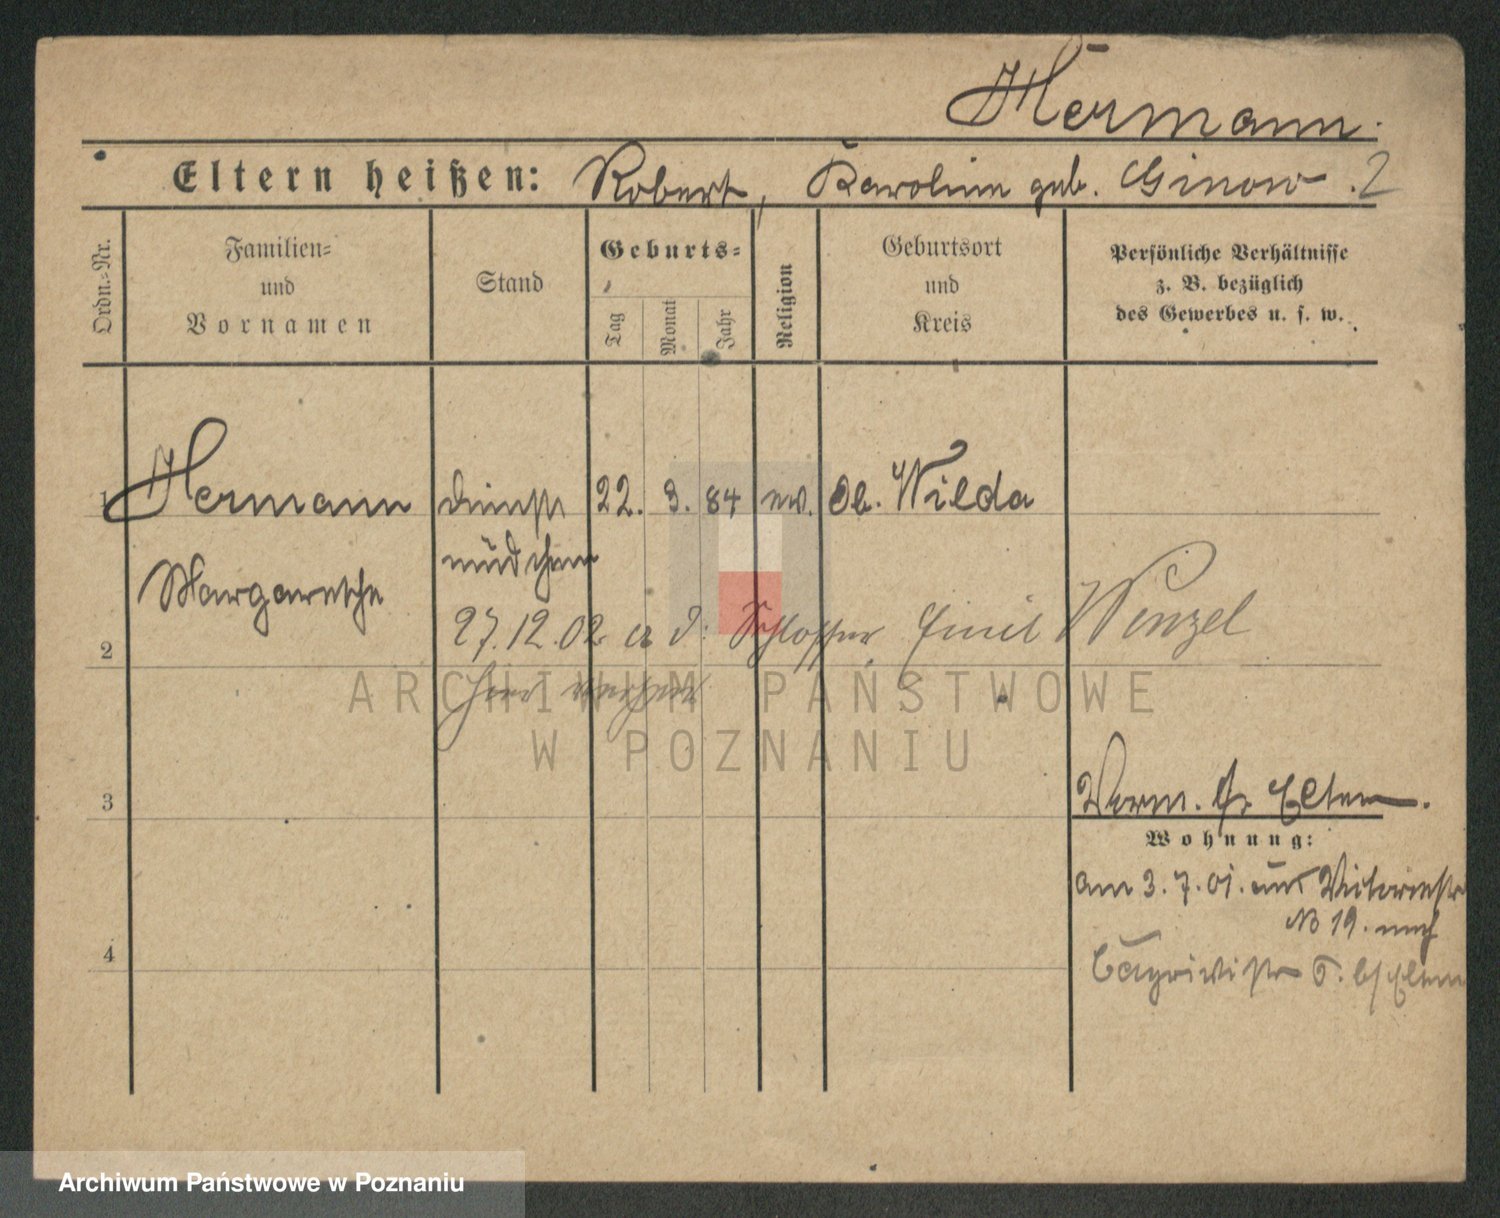 Hermann.
Eltern heißen: Robert, Karoline geb. Ginow. 2
Ordn.-Nr.
Familien-
und
Vornamen
Stand
Geburts-
Tag
Monat
Jahr
Religion
Geburtsort
und
Kreis
Persönliche Verhältnisse
z. B. bezüglich
des Gewerbes u. s. w.
1 Hermann Dienst 22. 3. 84 ev. Ob. Wilda
mädchen
Margarethe
27.12.02 a d. Schlosser Emil Wenzel
2
hier verh
ARCHIWUM PAŃSTWOWE
W POZNANIU
3 Verm. Eltern.
Wohnung:
am 3. 7. 01. aus Victoriastr
No 19. nach
4
6. b/ Eltern
Archiwum Państwowe w Poznaniu